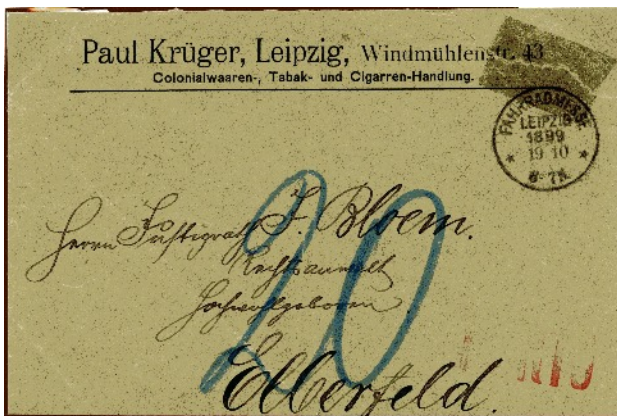 Paul Krüger, Leipzig, Windmühlenstr. 43
Colonialwaaren-, Tabak- und Cigarren-Handlung.
FAHRRADMESSE
LEIPZIG
1899
19 10
6-7N
20
Herrn Justizrath J. Bloem.
Rechtsanwalt
Hochwohlgeboren
Elberfeld.